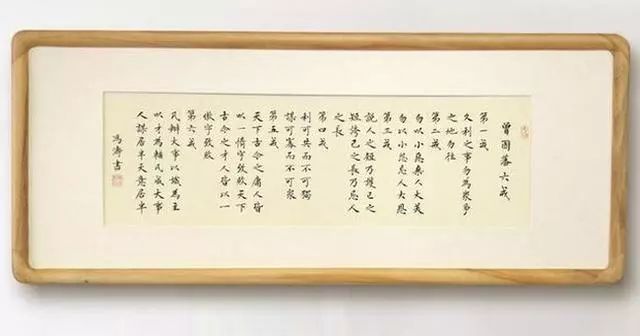 曾國藩六戒
第一戒
久利之事勿為眾爭
之地勿往
第二戒
勿以小惡棄人大美
勿以小怨忘人大恩
第三戒
説人之短乃護己之
短誇己之長乃忌人
之長
第四戒
利可共而不可獨
謀可寡而不可眾
第五戒
天下古今之庸人皆
以一惰字致敗天下
古今之才人皆以一
傲字致敗
第六戒
凡辦大事以識為主
以才為輔凡成大事
人謀居半天意居半
馮濤書